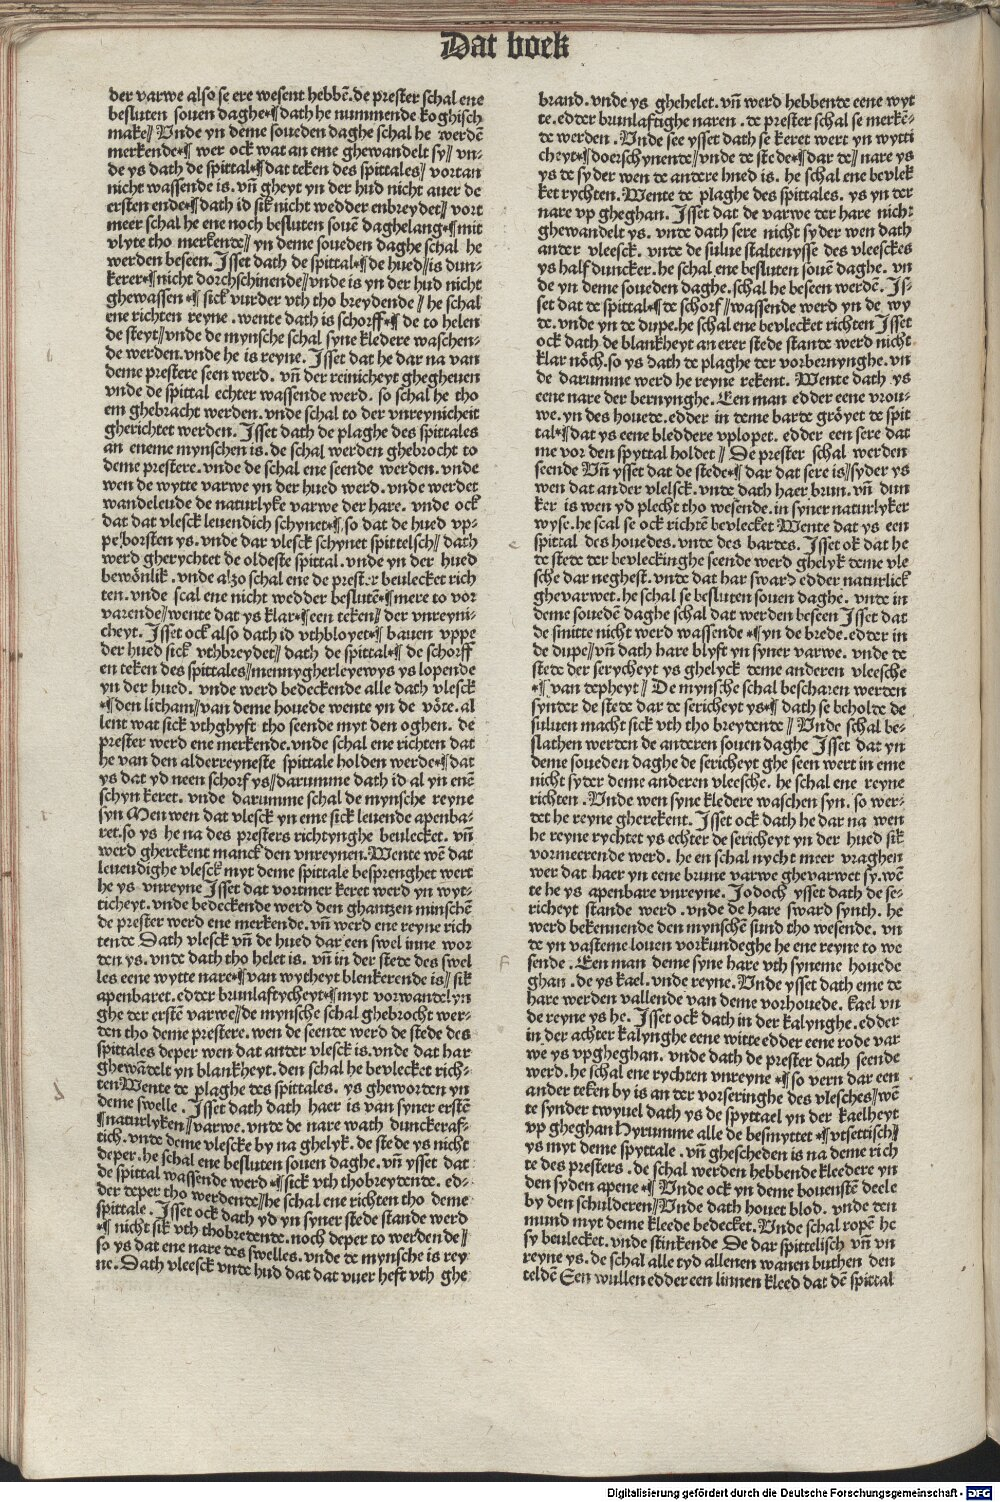 Dat boek
der varwe also se ere wesent hebbē. de prester schal ene
besluten souen daghe*¶ dath he nummende koghisch
make// Unde yn deme soueden daghe schal he werdē
merkende*¶ wer ock wat an eme ghewandelt sy// vn-
de ys dath de spittal*¶ dat teken des spittales// vortan
nicht wassende is. vn̄ gheyt yn der hud nicht auer de
ersten ende*¶ dath id sik nicht wedder enbreydet// vort
meer schal he ene noch besluten souē daghelang*¶ mit
vlyte tho merkende// yn deme soueden daghe schal he
werden beseen. Isset dath de spittal*¶ de hued// is dun-
kerer*¶ nicht dorchschinende// vnde is yn der hud nicht
ghewassen*¶ sick vurder vth tho breydende// he schal
ene richten reyne. wente dath is schorff*¶ de to helen
de steyt// vnde de mynsche schal syne kledere waschen-
de werden. vnde he is reyne. Isset dat he dar na van
deme prestere seen werd. vn̄ der reinicheyt ghegheuen
vnde de spittal echter wassende werd. so schal he tho
em ghebracht werden. vnde schal to der vnreynicheit
gherichtet werden. Isset dath de plaghe des spittales
an eneme mynschen is. de schal werden ghebrocht to
deme prestere. vnde de schal ene seende werden. vnde
wen de wytte varwe yn der hued werd. vnde werdet
wandelende de naturlyke varwe der hare. vnde ock
dat dat vlesck leuendich schynet*¶ so dat de hued vp-
peborsten ys. vnde dar vlesck schynet spittelsch// dath
werd gherychtet de oldeste spittal. vnde yn der hued
bewōnlik. vnde alzo schal ene de prester beulecket rich
ten. vnde scal ene nicht wedder beslutē*¶ mere to vor
varende// wente dat ys klar*¶ een teken// der vnreyni-
cheyt. Isset ock also dath id vthbloyet*¶ bauen vppe
der hued sick vthbreydet// dath de spittal*¶ de schorff
en teken des spittales// mennygherleyewys ys lopende
yn der hued. vnde werd bedeckende alle dath vlesck
*¶ den litham// van deme houede wente yn de vōte. al
lent wat sick vthghyft tho seende myt den oghen. de
prester werd ene merkende. vnde schal ene richten dat
he van den alderreyneste spittale holden werde*¶ dat
ys dat yd neen schorf ys// darumme dath id al yn enē
schyn keret. vnde darumme schal de mynsche reyne
syn Men wen dat vlesck yn eme sick leuende apenba-
ret. so ys he na des presters richtynghe beulecket. vn̄
werd gherekent manck den vnreynen. Wente wē dat
leuendighe vlesck myt deme spittale besprenghet wert
he ys vnreyne Isset dat vortmer keret werd yn wyt-
ticheyt. vnde bedeckende werd den ghantzen minschē
de prester werd ene merkende. vn̄ werd ene reyne rich
tende Dath vlesck vn̄ de hued dar een swel inne wor
den ys. vnde dath tho helet is. vn̄ in der stede des swel
les eene wytte nare*¶ van wytheyt blenkerende is// sik
apenbaret. edder brunlaftycheyt*¶ myt vorwandelyn
ghe der erstē varwe// de mynsche schal ghebrocht wer-
den tho deme prestere. wen de seende werd de stede des
spittales deper wen dat ander vlesck is. vnde dat har
ghewādelt yn blankheyt. den schal he bevlecket rich-
ten Wente de plaghe des spittales. ys gheworden yn
deme swelle. Isset dath dath haer is van syner erstē
¶ naturlyken// varwe. vnde de nare wath dunckeraf-
tich. vnde deme vlescke by na ghelyk. de stede ys nicht
deper. he schal ene besluten souen daghe. vn̄ ysset dat
de spittal wassende werd*¶ sick vth thobreydende. ed-
der deper tho werdende// he schal ene richten tho deme
spittale. Isset ock dath yd yn syner stede stande werd
*¶ nicht sik vth thobredende. noch deper to werdende//
so ys dat ene nare des swelles. vnde de mynsche is rey
ne. Dath vleesck vnde hud dat dat vuer heft vth ghe
brand. vnde ys ghehelet. vn̄ werd hebbende eene wyt
te. edder brunlaftighe naren. de prester schal se merkē-
de werden. Unde see ysset dath se keret wert yn wytti
cheyt*¶ doerschynende// vnde de stede*¶ dar de// nare ys
ys de syder wen de andere hued is. he schal ene bevlek
ket rychten. Wente de plaghe des spittales. ys yn der
nare vp gheghan. Isset dat de varwe der hare nicht
ghewandelt ys. vnde dath sere nicht syder wen dath
ander vleesck. vnde de sulue staltenysse des vleesckes
ys half duncker. he schal ene besluten souē daghe. vn
de yn deme soueden daghe. schal he beseen werdē. Is-
set dat de spittal*¶ de schorf// wassende werd yn de wy
de. vnde yn de dupe. he schal ene bevlecket richten Isset
ock dath de blankheyt an erer stede stande werd nicht
klar nōch. so ys dath de plaghe der vorbernynghe. vn
de darumme werd he reyne rekent. Wente dath ys
eene nare der bernynghe. Een man edder eene vrou-
we. yn des houede. edder in deme barde grōyet de spit
tal*¶ dat ys eene bleddere vplopet. edder een sere dat
me vor den spyttal holdet// De prester schal werden
seende Un̄ ysset dat de stede*¶ dar dat sere is// syder ys
wen dat ander vlelsck. vnde dath haer brun. vn̄ dun
ker is wen yd plecht tho wesende. in syner naturlyker
wyse. he scal se ock richtē bevlecket Wente dat ys een
spittal des houedes. vnde des bardes. Isset ok dat he
de stede der bevleckinghe seende werd ghelyk deme vle
sche dar neghest. vnde dat har sward edder naturlick
ghevarwet. he schal se besluten souen daghe. vnde in
deme souedē daghe schal dat werden beseen Isset dat
de smitte nicht werd wassende*¶ yn de brede. edder in
de dupe// vn̄ dath hare blyft yn syner varwe. vnde de
stede der serycheyt ys ghelyck deme anderen vleesche
*¶ van depheyt// De mynsche schal bescharen werden
synder de stede dar de sericheyt ys*¶ dath se beholde de
suluen macht sick vth tho breydende// Unde schal be-
slathen werden de anderen souen daghe Isset dat yn
deme soueden daghe de sericheyt ghe seen wert in eme
nicht syder deme anderen vleesche. he schal ene reyne
richten. Unde wen syne kledere waschen syn. so wer-
det he reyne gherekent. Isset ock dath he dar na wen
he reyne rychtet ys echter de sericheyt yn der hued sik
vormeerende werd. he en schal nycht meer vraghen
wer dat haer yn eene brune varwe ghevarwet sy. wē
te he ys apenbare vnreyne. Jodoch ysset dath de se-
richeyt stande werd. vnde de hare sward synth. he
werd bekennende den mynschē sund tho wesende. vn
de yn vasteme louen vorkundeghe he ene reyne to we
sende. Een man deme syne hare vth syneme houede
ghan. de ys kael. vnde reyne. Unde ysset dath eme de
hare werden vallende van deme vorhouede. kael vn
de reyne ys he. Isset ock dath in der kalynghe. edder
in der achter kalynghe eene witte edder eene rode var
we ys vpgheghan. vnde dath de prester dath seende
werd. he schal ene rychten vnreyne*¶ so vern dar een
ander teken by is an der vorseringhe des vlesches// wē
te synder twyuel dath ys de spyttael yn der kaelheyt
vp gheghan Hyrumme alle de besmyttet*¶ vtsettisch//
ys myt deme spyttale. vn̄ ghescheden is na deme rich
te des presters. de schal werden hebbende kleedere yn
den syden apene*¶ Unde ock yn deme bouenstē deele
by den schulderen// Unde dath houet blod. vnde den
mund myt deme kleede bedecket. Unde schal ropē he
sy beulecket. vnde stinkende De dar spittelisch vn̄ vn
reyne ys. de schal alle tyd allenen wanen buthen den
teldē Een wullen edder een linnen kleed dat dē spittal
Digitalisierung gefördert durch die Deutsche Forschungsgemeinschaft - DFG